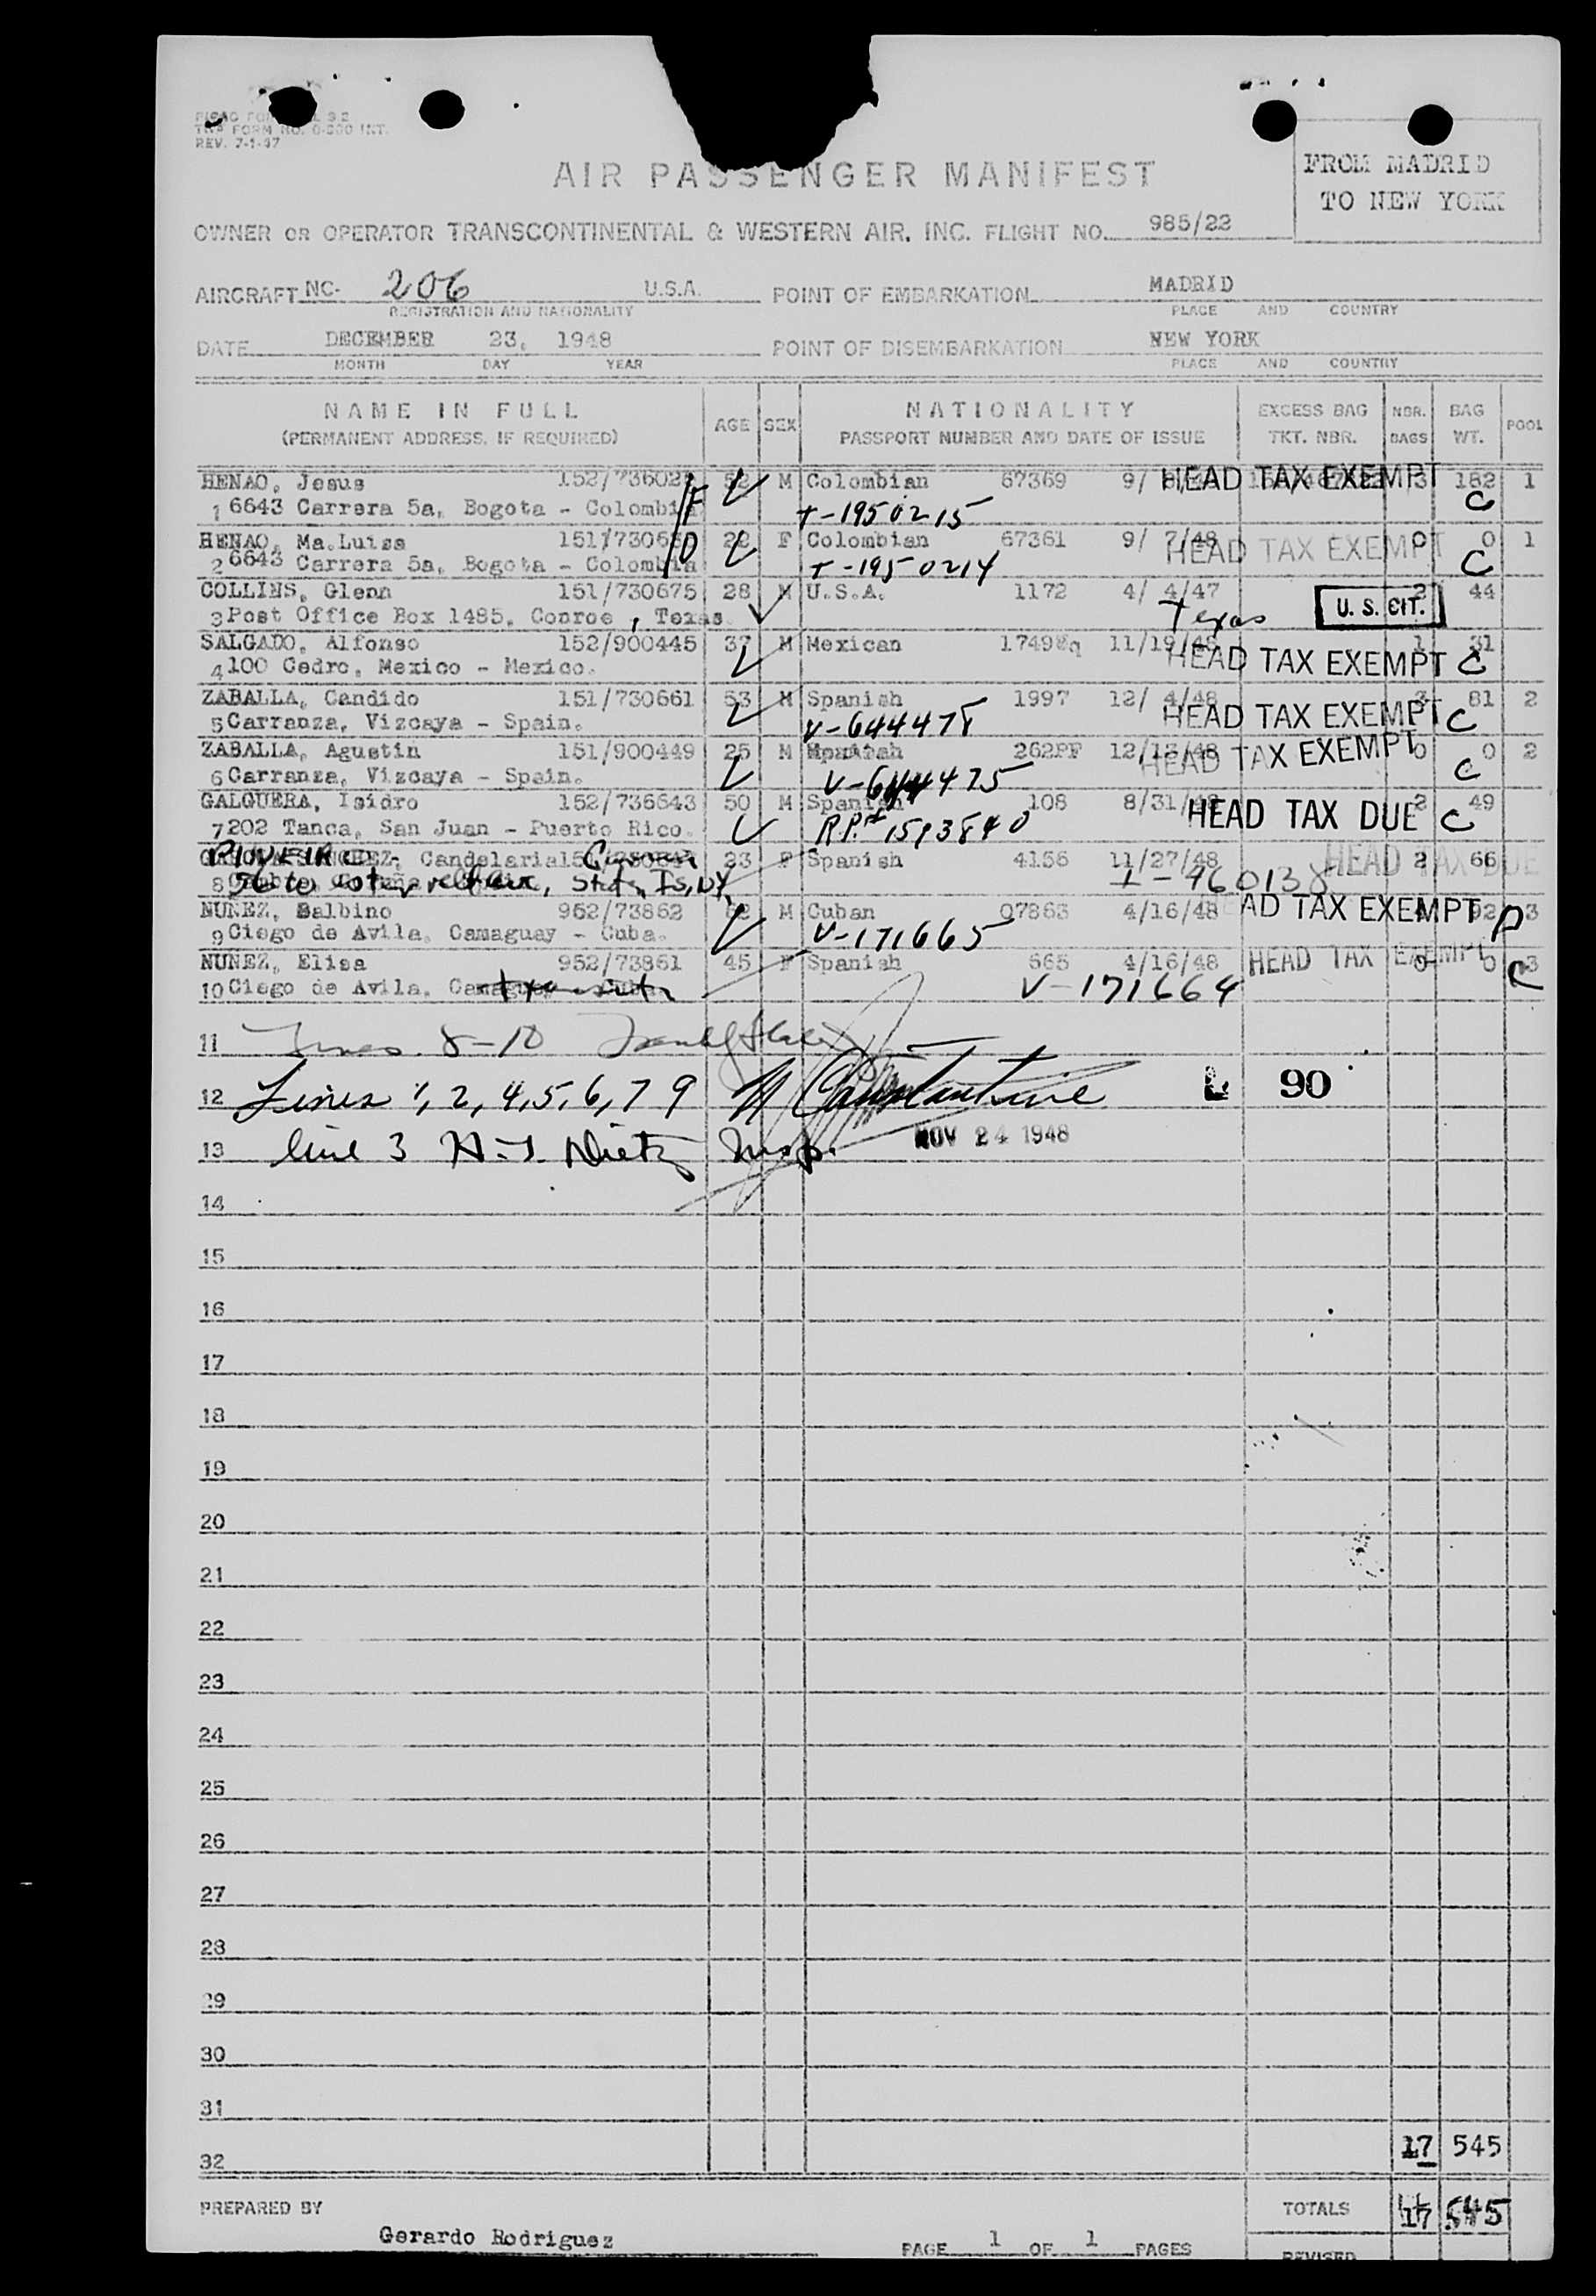 REV. 7-1-47
FROM MADRID
TO NEW YORK
AIR PASSENGER MANIFEST
OWNER OR OPERATOR TRANSCONTINENTAL & WESTERN AIR, INC. FLIGHT NO. 985/22
AIRCRAFT NC- 206 U.S.A. POINT OF EMBARKATION MADRID
REGISTRATION AND NATIONALITY PLACE AND COUNTRY
DATE DECEMBER 23, 1948 POINT OF DISEMBARKATION NEW YORK
MONTH DAY YEAR PLACE AND COUNTRY
NAME IN FULL AGE SEX NATIONALITY EXCESS BAG NBR. BAG POOL
(PERMANENT ADDRESS, IF REQUIRED) PASSPORT NUMBER AND DATE OF ISSUE TKT. NBR. BAGS WT.
HENAO, Jesus M Colombian 67369 9/ HEAD TAX EXEMPT 3 182 1
1 6643 Carrera 5a, Bogota - Colombia T-1950215 C
HENAO, Ma.Luisa F Colombian 67361 9/ 7/48 HEAD TAX EXEMPT 0 0 1
2 6643 Carrera 5a, Bogota - Colombia T-1950214 C
COLLINS, Glenn 151/730675 28 M U.S.A. 1172 4/ 4/47 2 44
3 Post Office Box 1485, Conroe, Texas. Texas U. S. CIT.
SALGADO, Alfonso 152/900445 37 M Mexican 11/19/48 1 31
4 100 Cedro, Mexico - Mexico. HEAD TAX EXEMPT C
ZABALLA, Candido 151/730661 53 M Spanish 1997 12/ 4/48 3 81 2
5 Carranza, Vizcaya - Spain. V-644478 HEAD TAX EXEMPT C
ZABALLA, Agustin 151/900449 25 M 262PF 12/13/48 HEAD TAX EXEMPT 0 0 2
6 Carranza, Vizcaya - Spain. C
GALGUERA, Isidro 152/736643 50 M Spanish 108 8/31/48 HEAD TAX DUE 2 C 49
7 202 Tanca, San Juan - Puerto Rico. 1593840
Candelaria 23 F Spanish 4156 11/27/48 HEAD TAX DUE 2 66
8
NUNEZ, Balbino 952/73862 M Cuban 07863 4/16/48 HEAD TAX EXEMPT 92 3
9 Ciego de Avila, Camaguey - Cuba. V-171665
NUNEZ, Elisa 952/73861 45 F Spanish 665 4/16/48 HEAD TAX EXEMPT 0 0 3
10 Ciego de Avila, V-171664 C
11 Lines 8-10
12 Lines 1, 2, 4, 5, 6, 7 9 90
13 line 3 Insp. NOV 24 1948
14
15
16
17
18
19
20
21
22
23
24
25
26
27
28
29
30
31
32 17 545
PREPARED BY TOTALS 17 545
Gerardo Rodriguez PAGE 1 OF 1 PAGES
REVISED